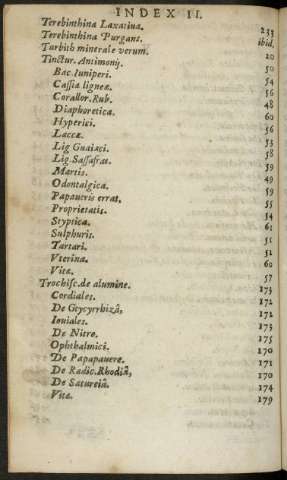 INDEX II.
Terebinthina Laxatiua. 233
Terebinthina Purgans. ibid.
Turbith minerale verum. 20
Tinctur. Antimonij. 50
Bac. Iuniperi. 54
Cassia ligneæ. 56
Corallor. Rub. 48
Diaphoretica. 60
Hyperici. 56
Laccæ. 53
Lig Guaiaci. 58
Lig. Sassafras. 59
Martis. 49
Odontalgica. 59
Papaueris errat. 55
Proprietatis. 54
Styptica. 61
Sulphuris. 51
Tartari. 51
Vterina. 60
Vitæ. 57
Trochisc. de alumine. 173
Cordiales. 172
De Glycyrrhizâ, 172
Iouiales. 173
De Nitro. 175
Ophthalmici. 170
De Papapauere. 171
De Radic. Rhodiâ, 170
De Satureiâ, 174
Vitæ. 179